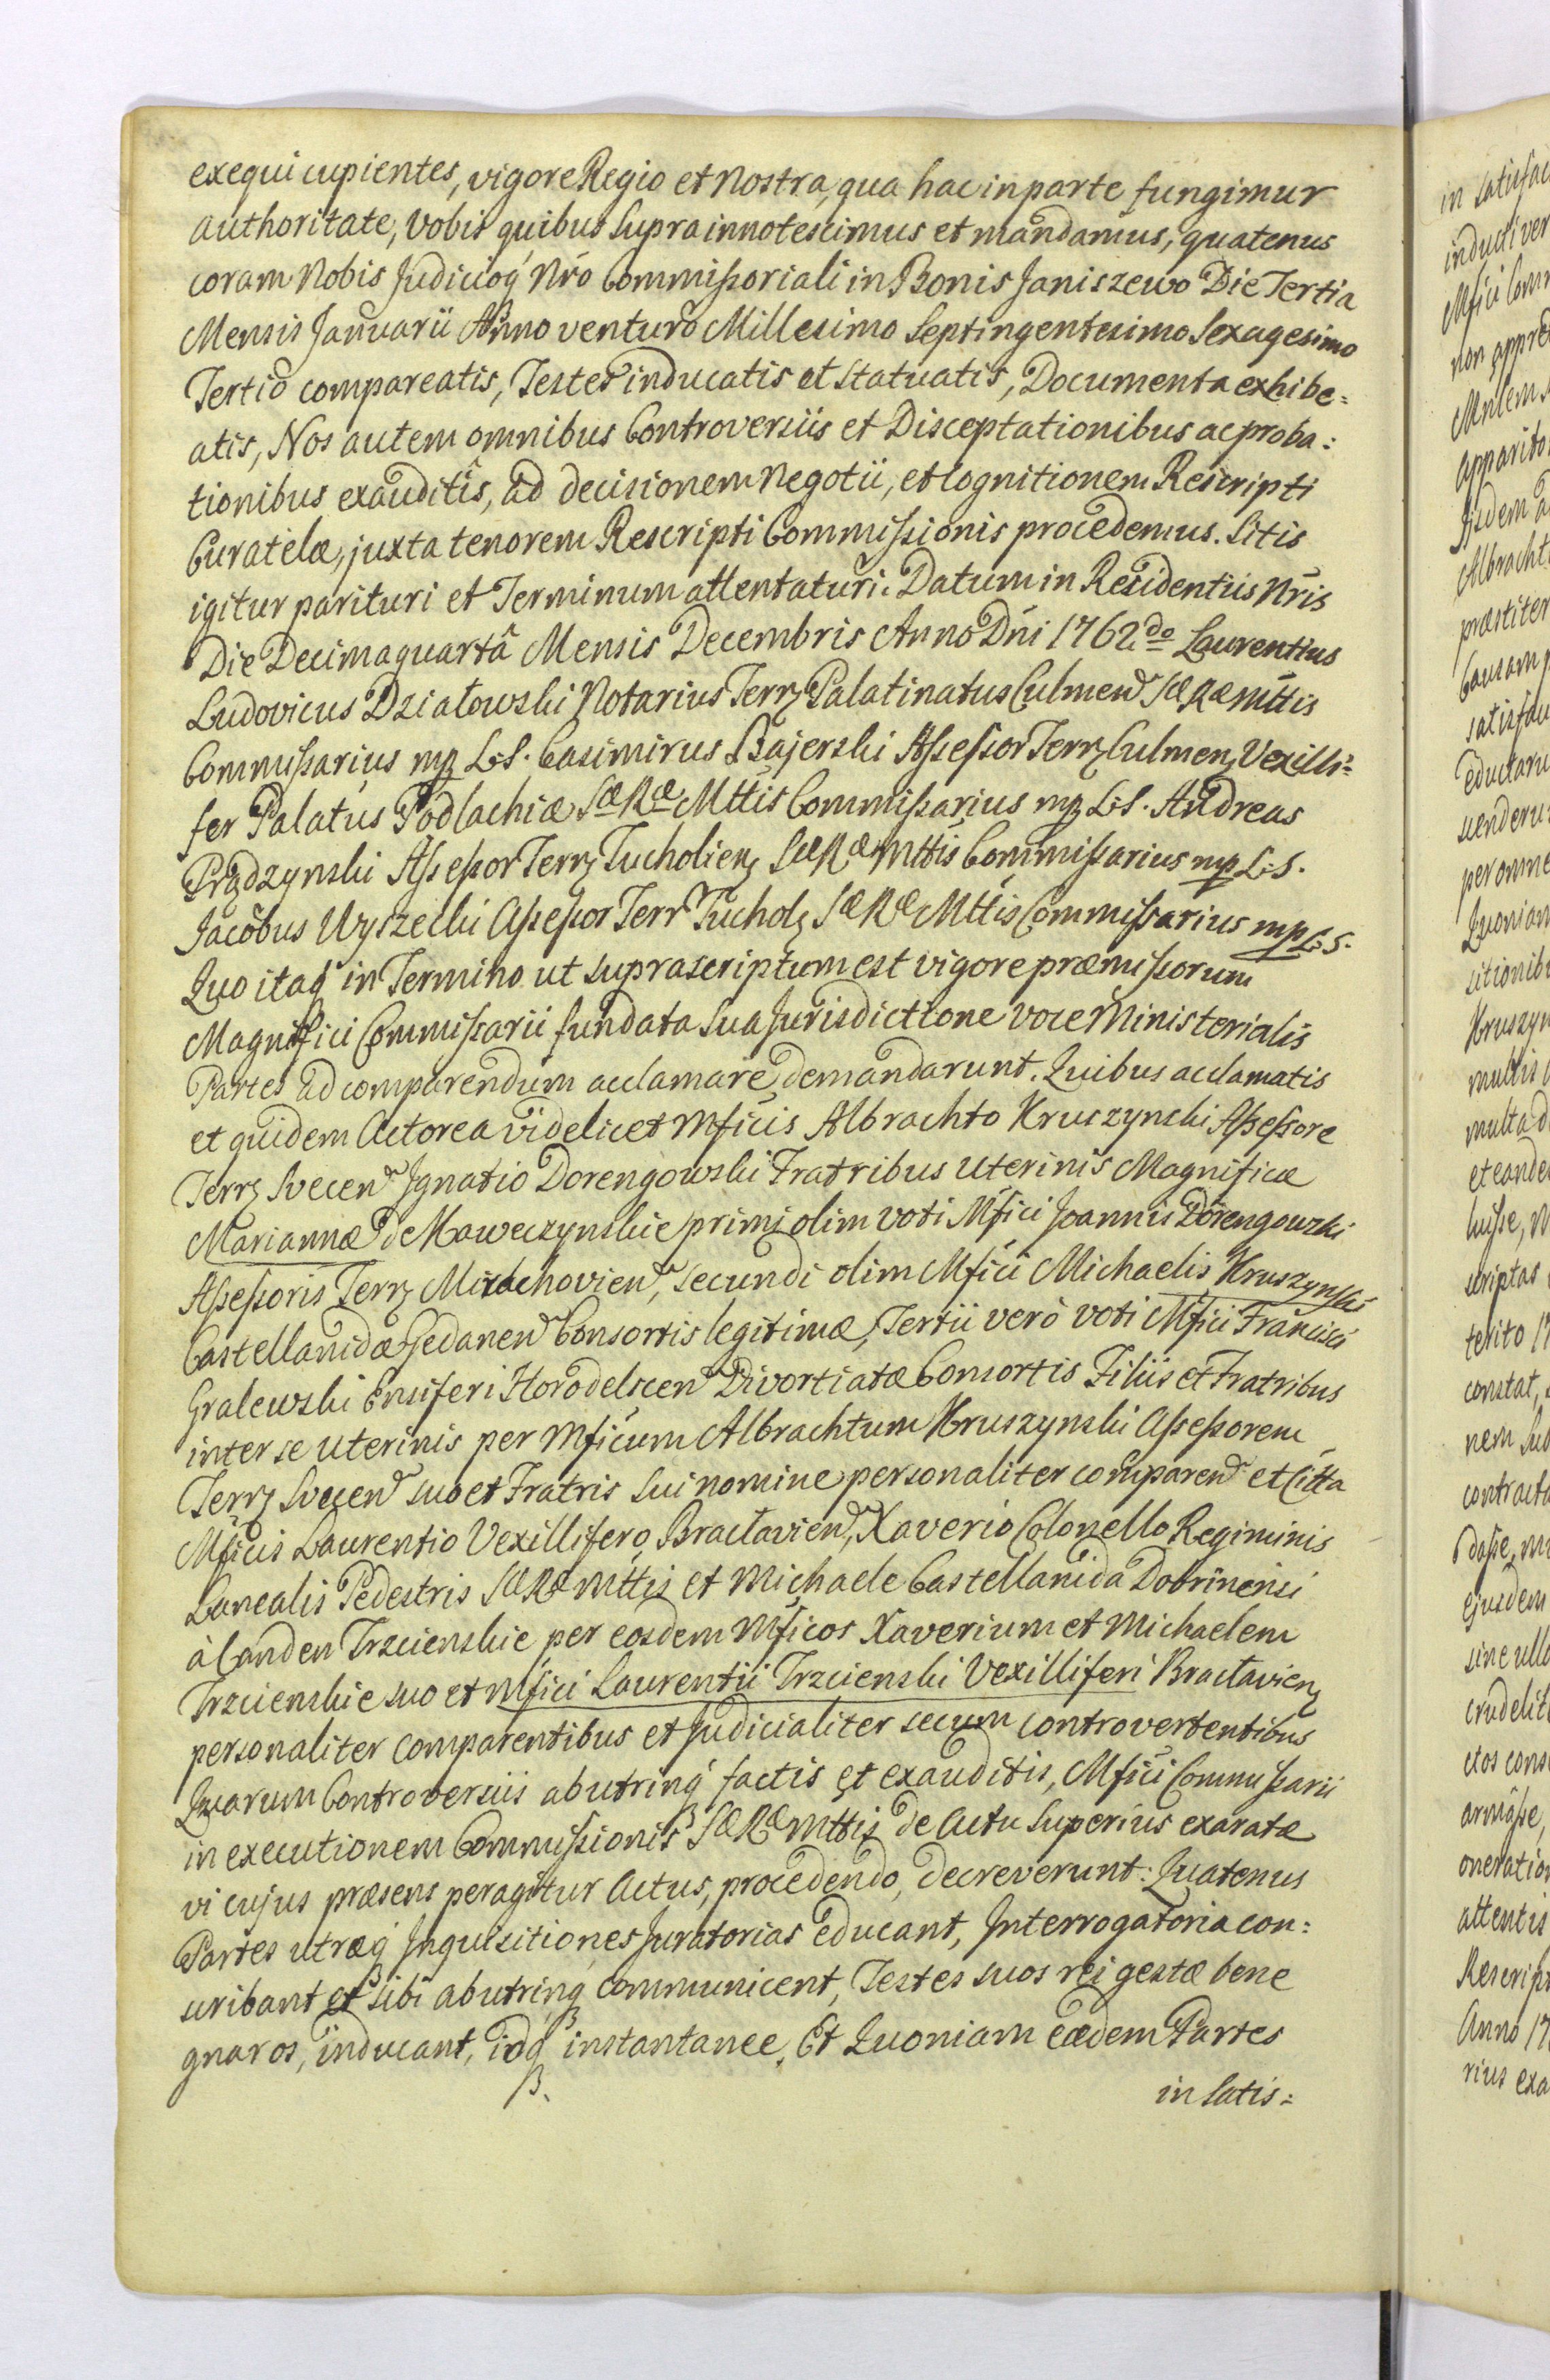 exequi cupientes, vigore Regio et Nostra, qua hac in parte fungimur
authoritate, Vobis quibus supra innotescimus et mandamus, quatenus
coram Nobis Judicioq́ Nr̃o Commissoriali in Bonis Janiszewo Die Tertia
Mensis Januarii Anno venturo Millesimo Septingentesimo Sexagesimo
Tertio compareatis, Testes inducatis et statuatis, Documenta exhibe=
atis, Nos autem omnibus Controversiis et Disceptationibus ac proba=
tionibus exauditis, ad decisionem Negotii, et Cognitionem Rescripti
Curatelæ, juxta tenorem Rescripti Commissionis procedemus. Sitis
igitur parituri et Terminum attentaturi. Datum in Residentiis Nr̃is
Die Decima quartâ Mensis Decembris Anno Dńi 1762do Laurentius
Ludovicus Działowski Notarius Terrz Palatinatus Culmen S̃æ Ræ Mttis
Commissarius mp L.S. Casimirus Bajerski Assessor Terrz Culmenz Vexilli=
fer Palatus Podlachiæ Sæ Ræ Mttis Commissarius mp L.S. Andreas
Prądzynski Assessor Terrz Tucholienz Sæ Ræ Mttis Commissarius mp L.S.
Jacobus Wyszecki Assessor Terr Tucholz Sæ Ræ Mttis Commissarius mp L.S.
Quo itaq́ in Termino ut suprascriptum est vigore præmissorum
Magnifici Commissarii fundata sua Jurisdictione voce Ministerialis
Partes ad comparendum acclamare demandarunt. Quibus acclamatis
et quidem Actorea videlicet Mficis Albrachto Kruszynski Assessore
Terrz Svecen Ignatio Dorengowski Fratribus Uterinis Magnificæ
Mariannæ de Kaweczynskie primi olim voti Mfici Joannis Dorengowski
Assessoris Terrz Mirachovien, secundi olim Mfici Michaelis Kruszynski
Castellanidæ Gedanen Consortis legitimæ, Tertii verò voti Mfici Francisci
Gralewski Ensiferi Horodelscen Divortiatæ Consortis Filiis et Fratribus
inter se uterinis per Mficum Albrachtum Kruszynski Assessorem
Terrz Svecen suo et Fratris sui nomine personaliter comparen et Citta
Mficis Laurentio Vexillifero Braclavien, Xaverio Colonello Regiminis
Lanealis Pedestris Sæ Ræ Mttis et Michaele Castellanida Dobrinensi
à Canden Trzcienskie per eosdem Mficos Xaverium et Michaelem
Trzcienskie suo et Mfici Laurentii Trzcienski Vexilliferi Braclavienz
personaliter comparentibus et Judicialiter secum controvertentibus
Quarum Controversiis abutrinq́ factis et exauditis, Mfici Commissarii
in executionem Commissionis Sæ Ræ Mttis de Actu superius exaratæ
vi cujus præsens peragitur Actus, procedendo, decreverunt: Quatenus
Partes utræq́ Inquisitiones Juratorias educant, Interrogatoria con=
scribant et sibi abutrinq́ communicent, Testes suos rei gestæ bene
gnaros, inducant, idq́ instantanee. Et Quoniam eædem Partes
in satis=